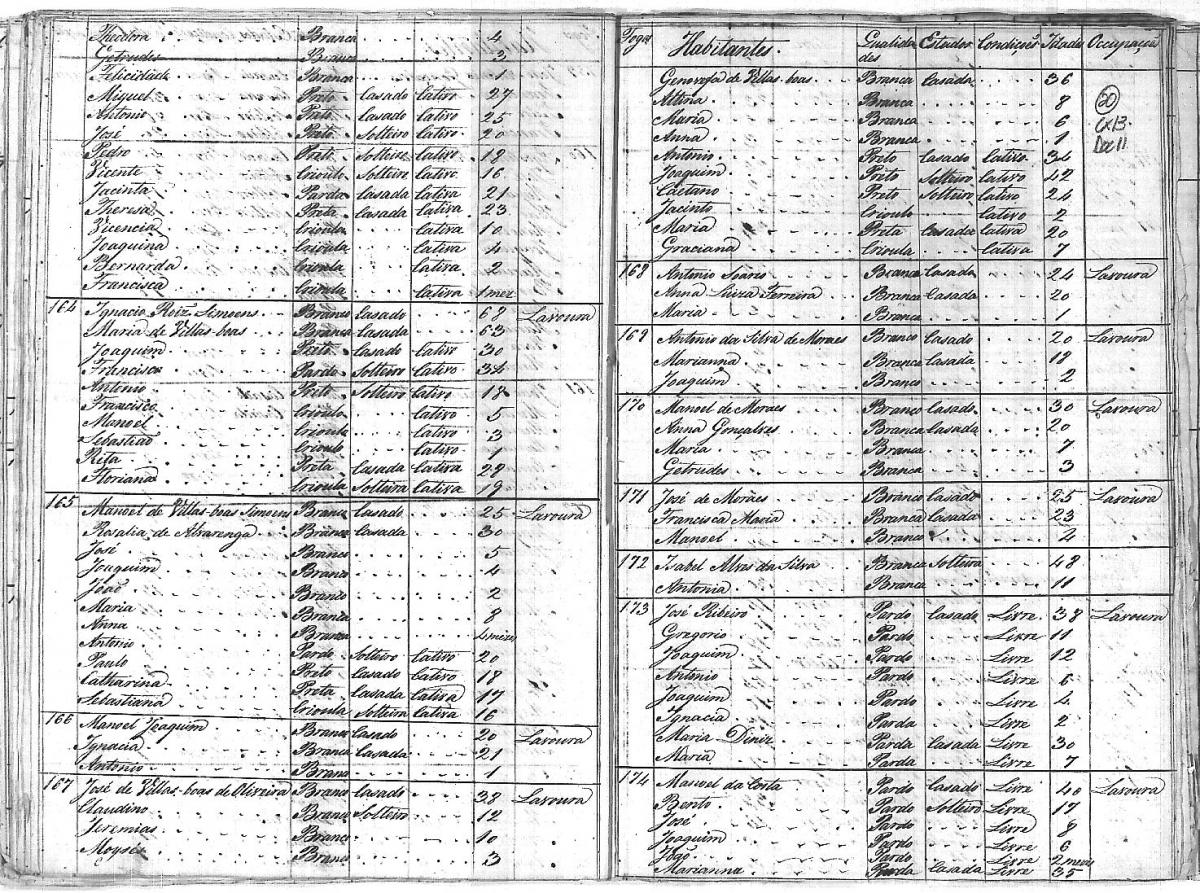 Theodora Branca 4
Getrudes Branca 3
Felicidade Branca 1
Miguel Preto Casado Cativo 27
Antonio Preto Casado Cativo 25
José Preto Solteiro Cativo 20
Pedro Preto Solteiro Cativo 18
Vicente Crioulo Solteiro Cativo 16
Jacinta Parda Casada Cativa 21
Theresa Preta Casada Cativa 23
Vicencia Crioula Cativa 10
Joaquina Crioula Cativa 4
Bernarda Crioula Cativa 2
Francisca Crioula Cativa 1 mez
164 Ignacio Roiz Simoens Branco Casado 68 Lavoura
Maria de Villas-boas Branca Casada 63
Joaquim Preto Casado Cativo 30
Francisco Pardo Solteiro Cativo 34
Antonio Preto Solteiro Cativo 18
Francisco Crioulo Cativo 5
Manoel Crioulo Cativo 3
Sebastião Crioulo Cativo 1
Rita Preta Casada Cativa 29
Floriana Crioula Solteira Cativa 19
165 Manoel de Villas-boas Simoens Branco Casado 25 Lavoura
Rosalia de Alvarenga Branca Casada 30
José Branco 5
Joaquim Branco 4
João Branco 2
Maria Branca 8
Anna Branca 4 mezes
Antonio Pardo Solteiro Cativo 20
Paulo Preto Casado Cativo 18
Catharina Preta Casada Cativa 17
Sebastiana Crioula Solteira Cativa 16
166 Manoel Joaquim Branco Casado 20 Lavoura
Ignacia Branca Casada 21
Antonio Branco 1
167 José de Villas-boas de Oliveira Branco Casado 38 Lavoura
Claudino Branco Solteiro 12
Jeremias Branco 10
Moyses Branco 3
Fogos Habitantes Qualidades Estados Condições Idades Occupação
Genovefa de Villas boas Branca Casada 36
Altina Branca 8
Maria Branca 6
Anna Branca 1
20
CX13
Doc 11
Antonio Preto Casado Cativo 34
Joaquim Preto Solteiro Cativo 42
Caetano Preto Solteiro Cativo 24
Jacinto Crioulo Cativo 2
Maria Preta Casada Cativa 20
Graciana Crioula Cativa 7
168 Antonio Soario Branco Casado 24 Lavoura
Anna Luiza Ferreira Branca Casada 20
Maria Branca 1
169 Antonio da Silva de Moraes Branco Casado 20 Lavoura
Marianna Branca Casada 18
Joaquim Branco 2
170 Manoel de Moraes Branco Casado 30 Lavoura
Anna Gonçalves Branca Casada 20
Maria Branca 7
Getrudes Branca 3
171 José de Moraes Branco Casado 25 Lavoura
Francisca Maria Branca Casada 23
Manoel Branco 2
172 Isabel Alves da Silva Branca Solteira 48
Antonia Branca 11
173 José Ribeiro Pardo Casado Livre 38 Lavoura
Gregorio Pardo Livre 11
Joaquim Pardo Livre 12
Antonio Pardo Livre 6
Joaquim Pardo Livre 4
Ignacia Parda Livre 2
Maria Diniz Parda Casada Livre 30
Maria Parda Livre 7
174 Manoel da Costa Pardo Casado Livre 40 Lavoura
Bento Pardo Solteiro Livre 17
José Pardo Livre 8
Joaquim Pardo Livre 6
João Pardo Livre 2 mezes
Marianna Parda Casada Livre 35